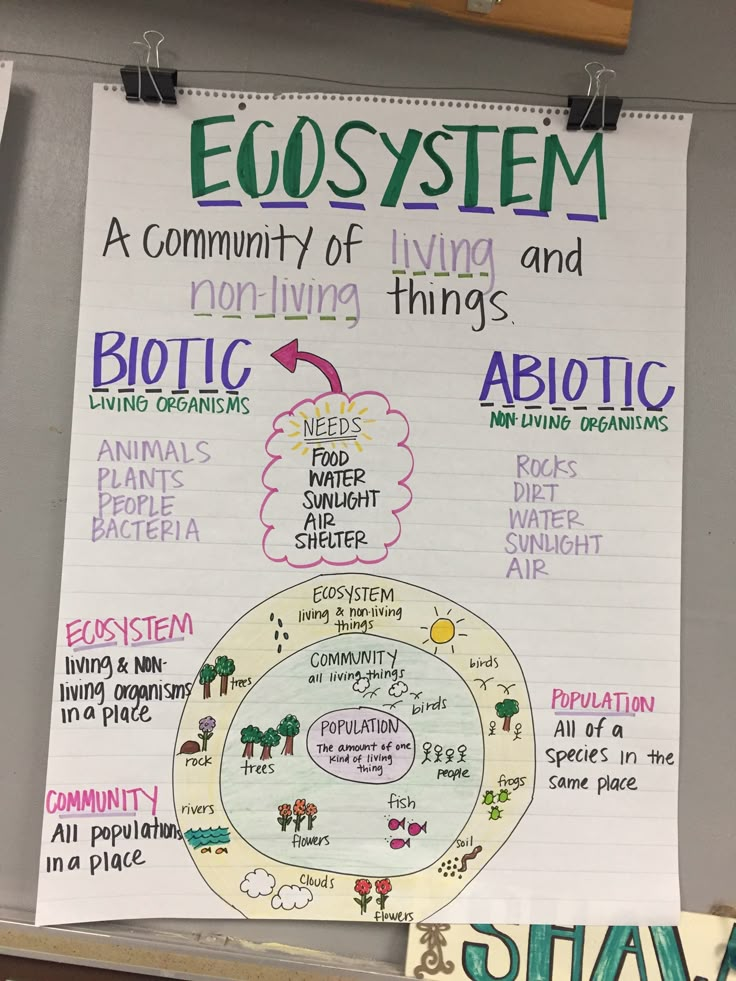 ECOSYSTEM
A Community of living and
non-living things.
BIOTIC
LIVING ORGANISMS
ANIMALS
PLANTS
PEOPLE
BACTERIA
NEEDS
FOOD
WATER
SUNLIGHT
AIR
SHELTER
ABIOTIC
NON-LIVING ORGANISMS
ROCKS
DIRT
WATER
SUNLIGHT
AIR
ECOSYSTEM
living & NON-
living organisms
in a place
COMMUNITY
All populations
in a place
ECOSYSTEM
living & non-living
things
birds
trees
rock
rivers
frogs
soil
clouds
flowers
COMMUNITY
all living things
birds
trees
people
fish
flowers
POPULATION
The amount of one
kind of living
thing
POPULATION
All of a
species in the
same place
SHA